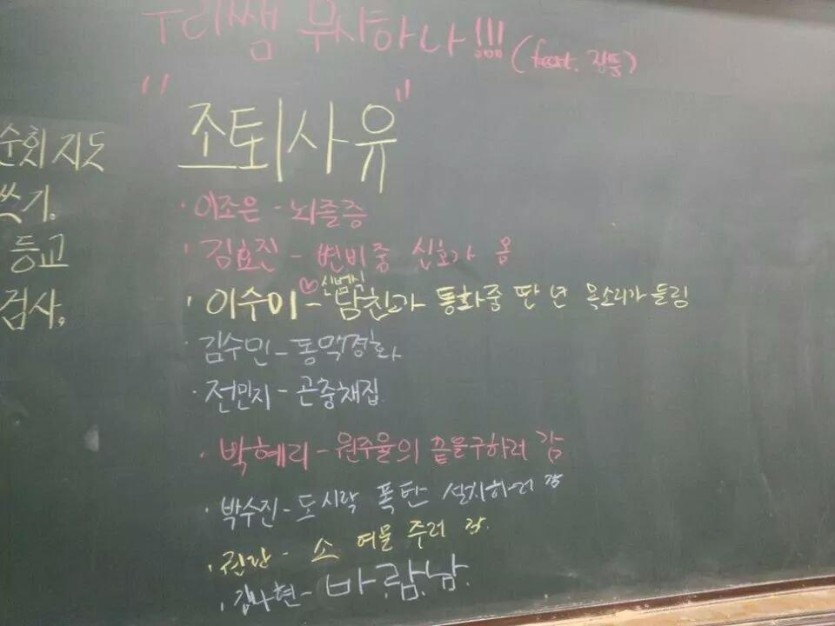 우리쌤 무사하나!!! (feat. 진통)
"조퇴사유"
순회 지도
쓰기.
등교
검사.
· 이조은 - 뇌졸증
· 김효진 - 변비중 신호가 옴
· 이수미 - ♡ 남친과 통화중 딴 년 목소리가 들림
· 김수민 - 동맥경화
· 전민지 - 곤충채집
· 박혜리 - 원주율의 끝을구하러 감
· 박수진 - 도시락 폭탄 설치하러 감
· 권란 - 소 여물 주러 감.
· 김나현 - 바.람.남.